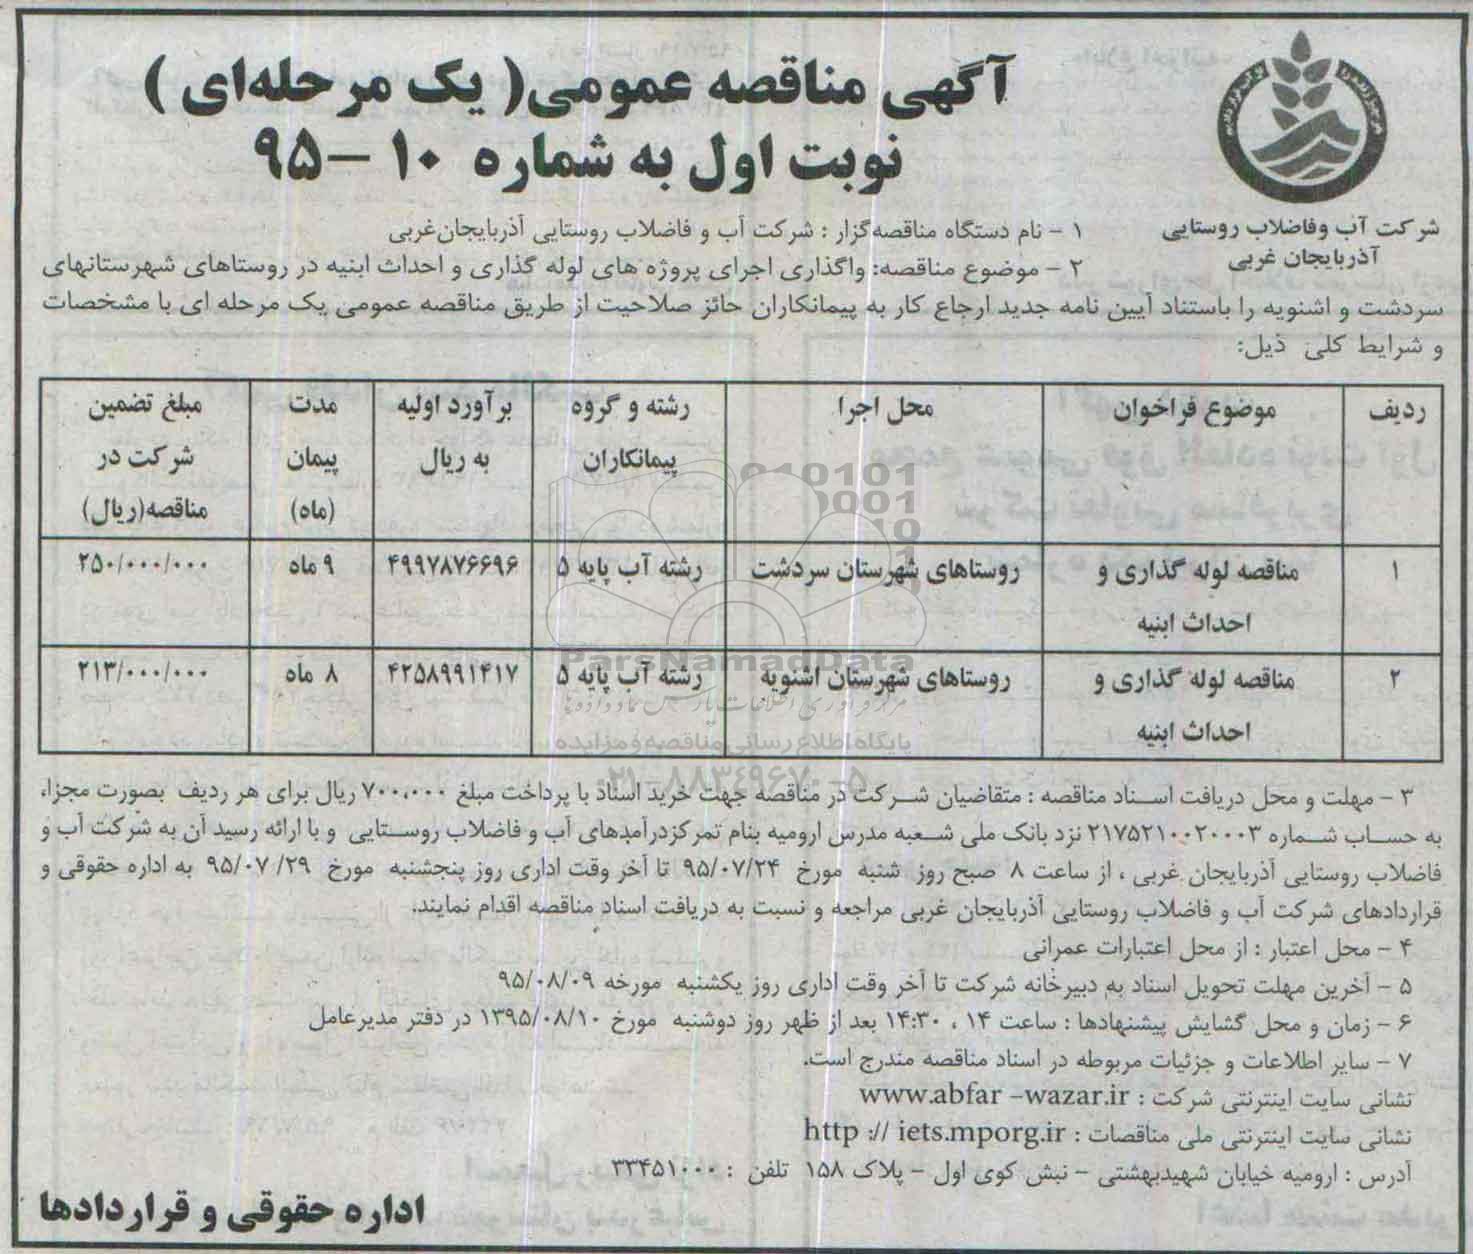 آگهی مناقصه عمومی( یک مرحله‌ای )
نوبت اول به شماره ۱۰ -۹۵
شرکت آب وفاضلاب روستایی
آذربایجان غربی
۱ - نام دستگاه مناقصه‌گزار : شرکت آب و فاضلاب روستایی آذربایجان‌غربی
۲ - موضوع مناقصه: واگذاری اجرای پروژه های لوله گذاری و احداث ابنیه در روستاهای شهرستانهای
سردشت و اشنویه را باستناد آیین نامه جدید ارجاع کار به پیمانکاران حائز صلاحیت از طریق مناقصه عمومی یک مرحله ای با مشخصات
و شرایط کلی ذیل:
ردیف موضوع فراخوان محل اجرا رشته و گروه برآورد اولیه مدت مبلغ تضمین
پیمانکاران به ریال پیمان شرکت در
(ماه) مناقصه(ریال)
۱ مناقصه لوله گذاری و روستاهای شهرستان سردشت رشته آب پایه ۵ ۴۹۹۷۸۷۶۶۹۶ ۹ ماه ۲۵۰/۰۰۰/۰۰۰
احداث ابنیه
۲ مناقصه لوله گذاری و روستاهای شهرستان اشنویه رشته آب پایه ۵ ۴۲۵۸۹۹۱۴۱۷ ۸ ماه ۲۱۳/۰۰۰/۰۰۰
احداث ابنیه
ParsNamadData
پایگاه اطلاع رسانی مناقصه و مزایده
۰۲۱-۸۸۳۴۹۶۷۰-۵
۳ - مهلت و محل دریافت اسناد مناقصه : متقاضیان شرکت در مناقصه جهت خرید اسناد با پرداخت مبلغ ۷۰۰،۰۰۰ ریال برای هر ردیف بصورت مجزا،
به حساب شماره ۲۱۷۵۲۱۰۰۲۰۰۰۳ نزد بانک ملی شعبه مدرس ارومیه بنام تمرکزدرآمدهای آب و فاضلاب روستایی و با ارائه رسید آن به شرکت آب و
فاضلاب روستایی آذربایجان غربی ، از ساعت ۸ صبح روز شنبه مورخ ۹۵/۰۷/۲۴ تا آخر وقت اداری روز پنجشنبه مورخ ۹۵/۰۷/۲۹ به اداره حقوقی و
قراردادهای شرکت آب و فاضلاب روستایی آذربایجان غربی مراجعه و نسبت به دریافت اسناد مناقصه اقدام نمایند.
۴ - محل اعتبار : از محل اعتبارات عمرانی
۵ - آخرین مهلت تحویل اسناد به دبیرخانه شرکت تا آخر وقت اداری روز یکشنبه مورخه ۹۵/۰۸/۰۹
۶ - زمان و محل گشایش پیشنهادها : ساعت ۱۴ ، ۱۴:۳۰ بعد از ظهر روز دوشنبه مورخ ۱۳۹۵/۰۸/۱۰ در دفتر مدیرعامل
۷ - سایر اطلاعات و جزئیات مربوطه در اسناد مناقصه مندرج است.
نشانی سایت اینترنتی شرکت : www.abfar -wazar.ir
نشانی سایت اینترنتی ملی مناقصات : http :// iets.mporg.ir
آدرس : ارومیه خیابان شهیدبهشتی - نبش کوی اول - پلاک ۱۵۸ تلفن : ۳۳۴۵۱۰۰۰
اداره حقوقی و قراردادها